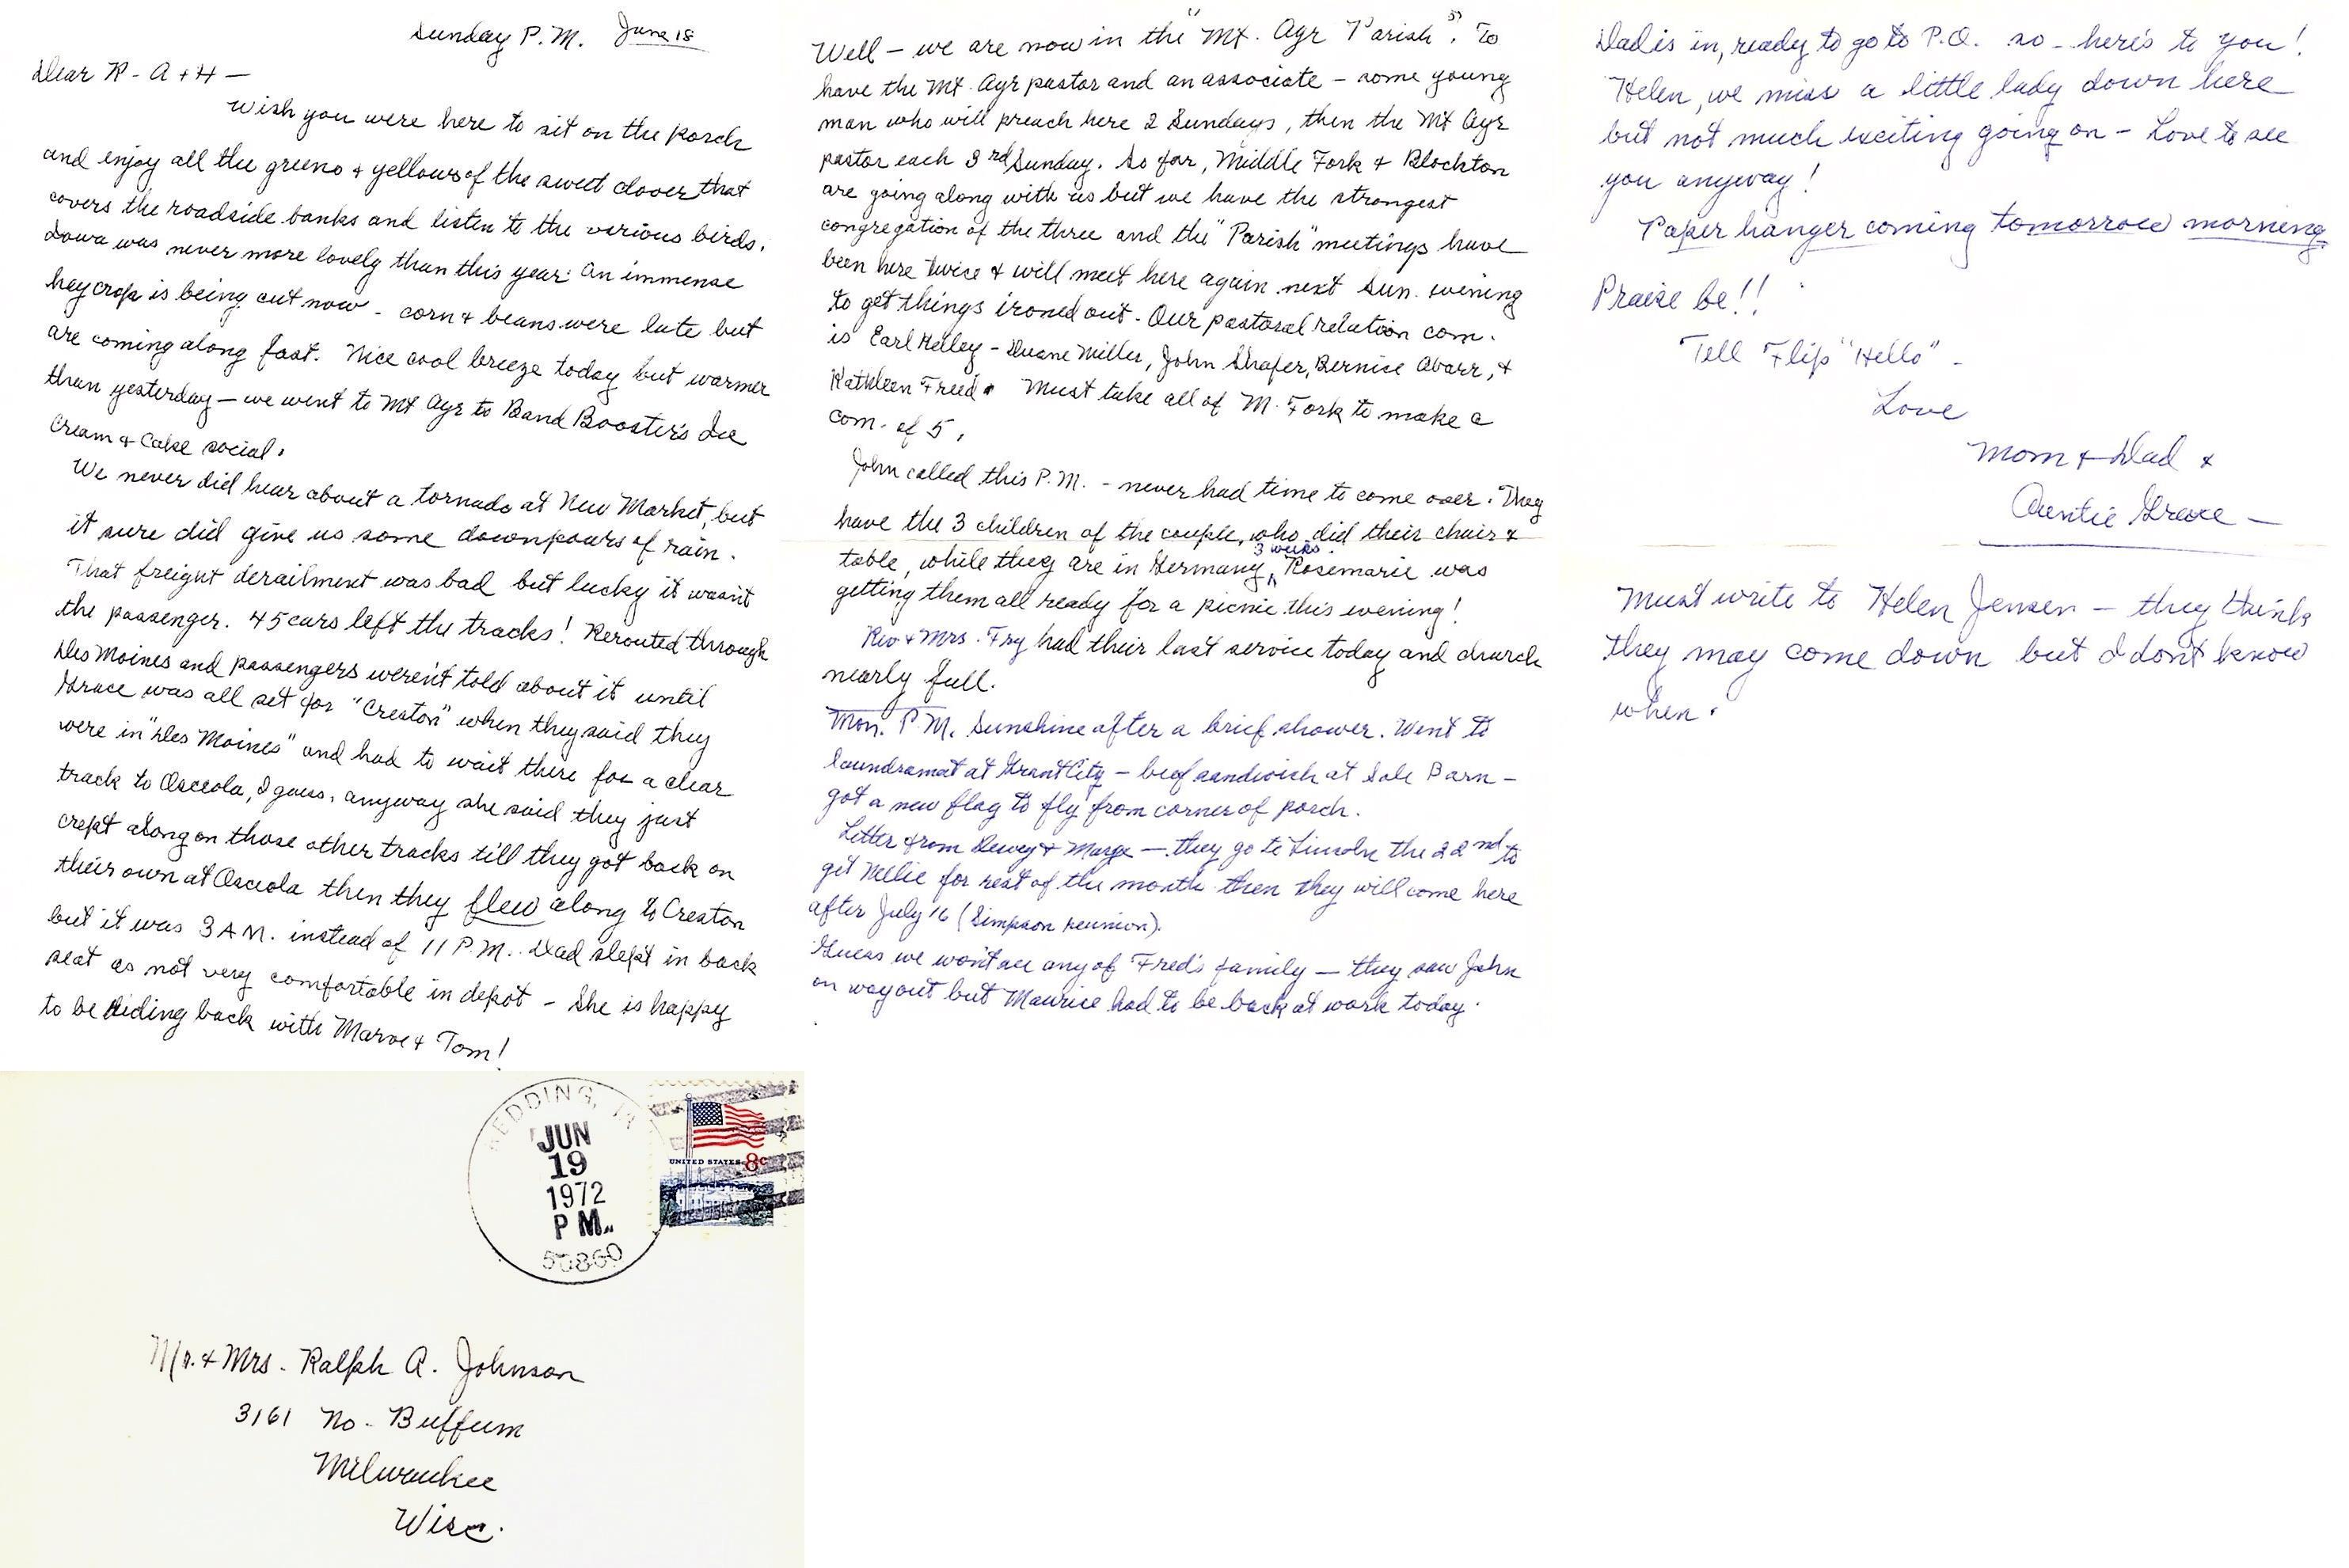 Sunday P.M. June 18
Dear R - A + H —
Wish you were here to sit on the porch
and enjoy all the greens + yellows of the sweet clover that
covers the roadside banks and listen to the various birds.
Iowa was never more lovely than this year. An immense
hey crop is being cut now - corn + beans were late but
are coming along fast. Nice cool breeze today but warmer
than yesterday — we went to Mt Ayr to Band Booster's Ice
Cream + Cake social.
We never did hear about a tornado at New Market, but
it sure did give us some downpours of rain.
That freight derailment was bad but lucky it wasn't
the passenger. 45 cars left the tracks! Rerouted through
Des Moines and passengers weren't told about it until
Grace was all set for "Creston" when they said they
were in "Des Moines" and had to wait there for a clear
track to Osceola, I guess. anyway she said they just
crept along on those other tracks till they got back on
their own at Osceola then they flew along to Creston
but it was 3 A.M. instead of 11 P.M.. Dad slept in back
seat as not very comfortable in depot - She is happy
to be riding back with Marve + Tom!
Well — we are now in the "Mt. Ayr Parish". To
have the Mt Ayr pastor and an associate — some young
man who will preach here 2 Sundays, then the Mt Ayr
pastor each 3rd Sunday. So far, Middle Fork + Blockton
are going along with us but we have the strongest
congregation of the three and the "Parish" meetings have
been here twice + will meet here again next Sun. evening
to get things ironed out. Our pastoral relation com.
is Earl Kelley - Duane Miller, John Shafer, Bernice Abarr, +
Kathleen Freed. Must take all of M. Fork to make a
com. of 5.
John called this P.M. - never had time to come over. They
have the 3 children of the couple, who did their chair +
table, while they are in Germany 3 weeks, Rosemarie was
getting them all ready for a picnic this evening!
Rev + Mrs. Fry had their last service today and church
nearly full.
Mon. P.M. Sunshine after a brief shower. Went to
laundramat at Grant City — beef sandwich at Sale Barn —
got a new flag to fly from corner of porch.
Letter from Dewey + Marge — they go to Lincoln the 22nd to
get Nellie for rest of the month then they will come here
after July 16 (Simpson reunion).
Guess we won't see any of Fred's family — they saw John
on way out but Maurice had to be back at work today.
Dad is in, ready to go to P.O. so - here's to you!
Helen, we miss a little lady down here
but not much exciting going on - Love to see
you anyway!
Paper hanger coming tomorrow morning
Praise be!!
Tell Flip "Hello" -
Love
Mom + Dad +
Auntie Grace —
Must write to Helen Jensen — they think
they may come down but I don't know
when.
REDDING, IA
JUN
19
1972
PM
50860
UNITED STATES 8c
Mr. + Mrs. Ralph A. Johnson
3161 No. Buffum
Milwaukee
Wisc.